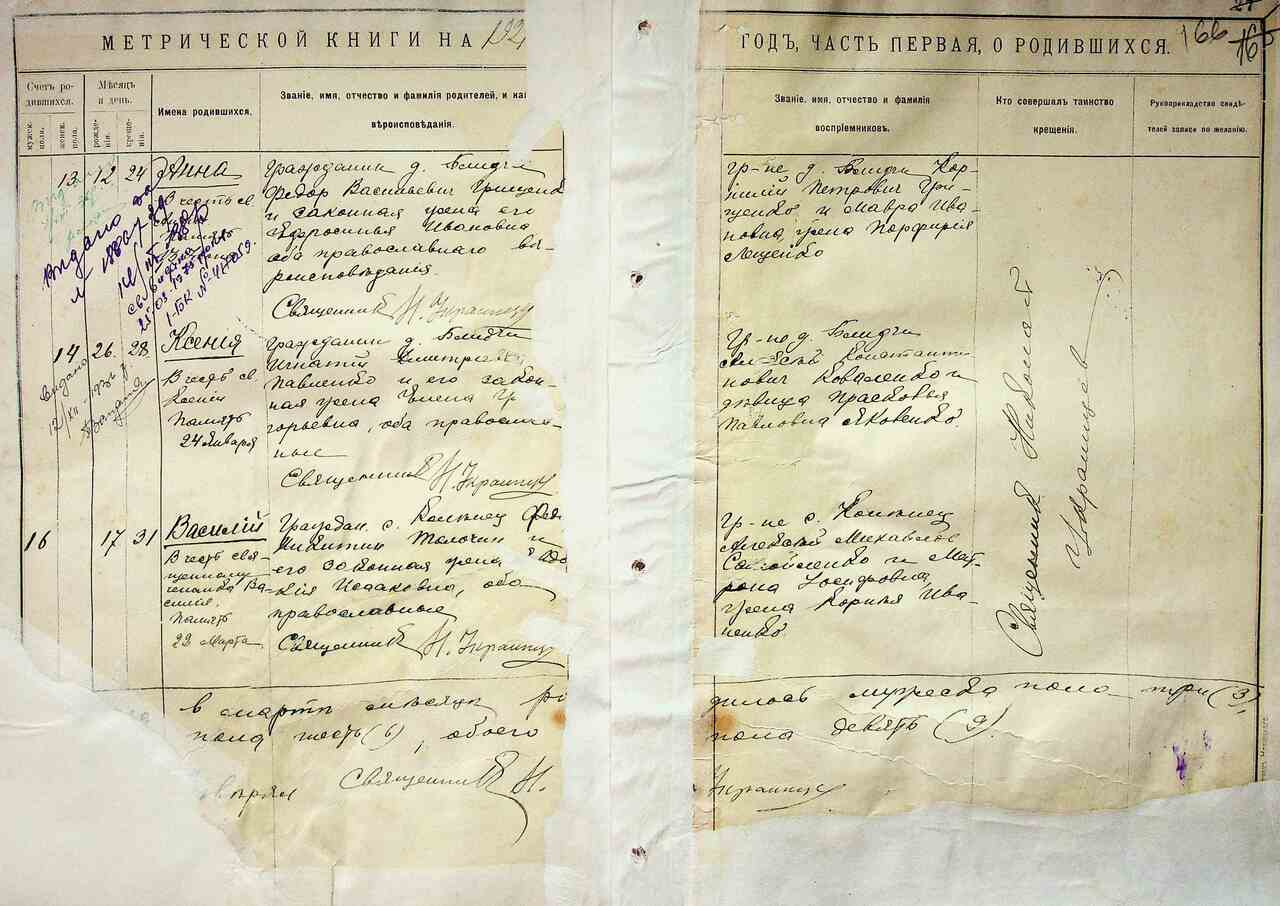 МЕТРИЧЕСКОЙ КНИГИ НА 192
ГОДЪ, ЧАСТЬ ПЕРВАЯ, О РОДИВШИХСЯ. 166
Счетъ ро-
дившихся.
мужск. пола.
женск. пола.
Мѣсяцъ
и день.
рожде-
нія.
креще-
нія.
Имена родившихся.
Званіе, имя, отчество и фамилія родителей, и как
вѣроисповѣданія.
Званіе, имя, отчество и фамилія
воспріемниковъ.
Кто совершалъ таинство
крещенія.
Рукоприкладство свидѣ-
телей записи по желанію.
13 12 24 Анна
В честь св.
Гражданин д. Блидчи
Федор Васильевич Грищенк
и законная жена его
Ивановна
оба православнаго вѣ-
роисповѣдания.
Священник Н. Украинцев
гр-не д. Блидчи Кор-
нилий Петрович Гри-
щенко и Мавра Ива-
новна, жена Порфирия
Лещенко
Выдано
25.03.1975
I-БК № 417059.
14 26 28 Ксенія
В честь св.
Ксении
Память
24 Января
Гражданин д. Блидчи
Игнатий Дмитрие
Павленко и его закон-
ная жена Елена Гри
горьевна, оба православ-
ные
Священник Н. Украинцев
Гр-не д. Блидчи
Константи-
нович Коваленко и
девица Прасковья
Павловна Яковенко.
Выдано
12/XII - 193
16 17 31 Василій
В честь свя-
щенному-
ченика Ва-
силия.
Память
22 Марта
Граждан. с. Коленец
Никитин Толочин и
его законная жена
Исааковна, оба
православные
Священник Н. Украинцев
гр-не с. Коленец
Алексей Михайлов
Самойленко и Мат-
рона Иосифовна,
жена Корнея Ива-
ненко
Священник Николай
Украинцев
в марте месяце ро
дилось мужеска пола три (3)
пола шесть (6), обоего
пола девять (9).
Священник Н.
Украинцев